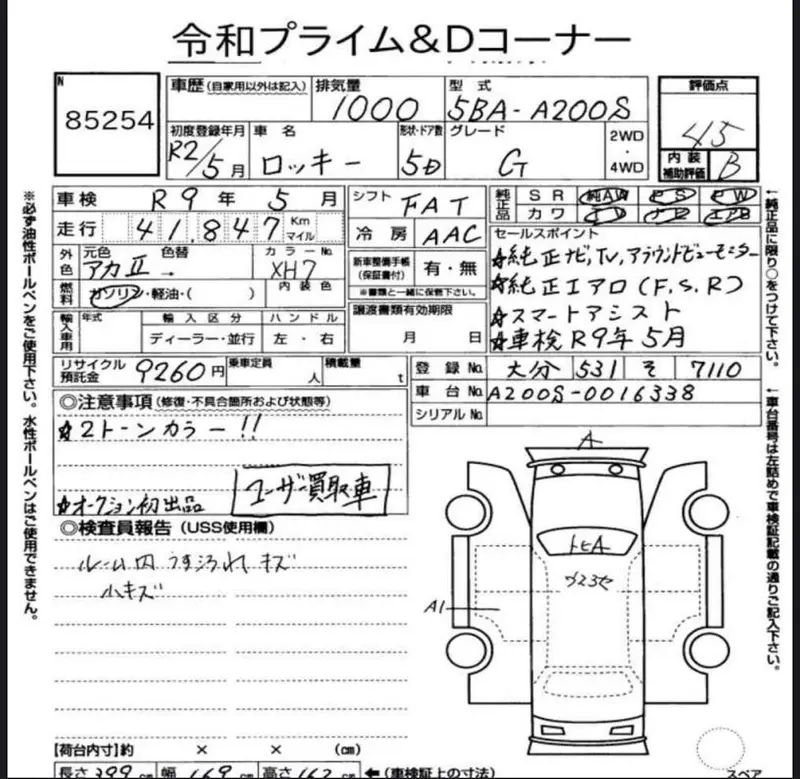 令和プライム&Dコーナー
N
85254
車歴 (自家用以外は記入)
排気量
1000
型式
5BA-A200S
評価点
4.5
初度登録年月
R2/5月
車名
ロッキー
形状・ドア数
5D
グレード
G
2WD
・
4WD
内装
補助評価
B
車検 R9年 5月
走行 41,847 Km
マイル
シフト FAT
冷房 AAC
純正品 SR 純AW PS PW
カワ TV ナビ エアB
外色
元色 色替
アカⅡ
カラーNo.
XH7
燃料
ガソリン・軽油・( )
内装色
新車整備手帳
(保証書付)
有・無
※書類と一緒に保管下さい。
セールスポイント
☆純正ナビ,TV,アラウンドビューモニター
☆純正エアロ(F,S,R)
☆スマートアシスト
☆車検R9年5月
輸入車用
年式
輸入区分
ディーラー・並行
ハンドル
左・右
譲渡書類有効期限
月 日
リサイクル
預託金
9260円
乗車定員
人
積載量
t
登録No. 大分 531 そ 7110
車台No. A200S-0016338
シリアルNo.
◎注意事項(修復・不具合箇所および状態等)
☆2トーンカラー!!
☆オークション初出品
ユーザー買取車
◎検査員報告 (USS使用欄)
ルーム内うすごれキズ
小キズ
A
トビA
A1
【荷台内寸】約 × × (cm)
長さ 399 cm 幅 169 cm 高さ 162 cm
←(車検証上の寸法)
スペア
※必ず油性ボールペンをご使用下さい。水性ボールペンはご使用できません。
←純正品に限り○をつけて下さい。
←車台番号は左詰めで車検証記載の通りご記入下さい。